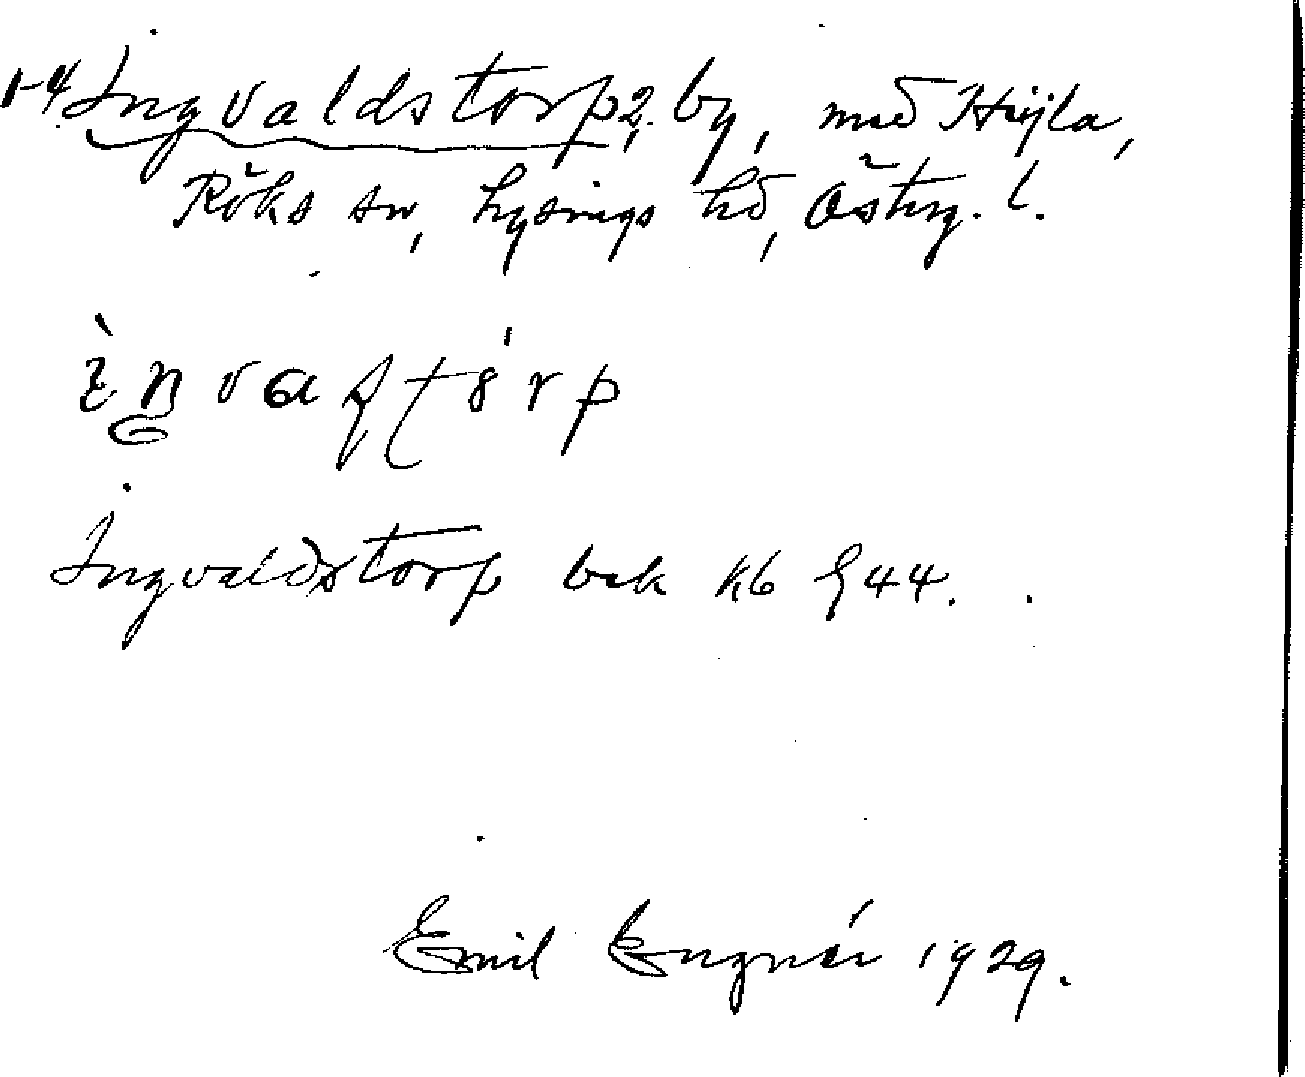 1-4 Ingvaldstorp, 2. by, med Höjla,
Röks sn, Lysings hd, Österg. l.
Ingvaldstorp bek kb § 44.
Emil Engnér 1929.